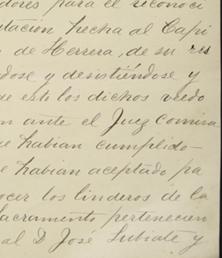 dores para el reconoci
tación hecha al Capi
n de Herrera, de su res
dose y desistiéndose y
de esto los dichos vedo
n ante el Juez Comisa
ue habian cumplido
e habian aceptado pa
ocer los linderos de la
Sacramento pertenecien
al D José Subiate y